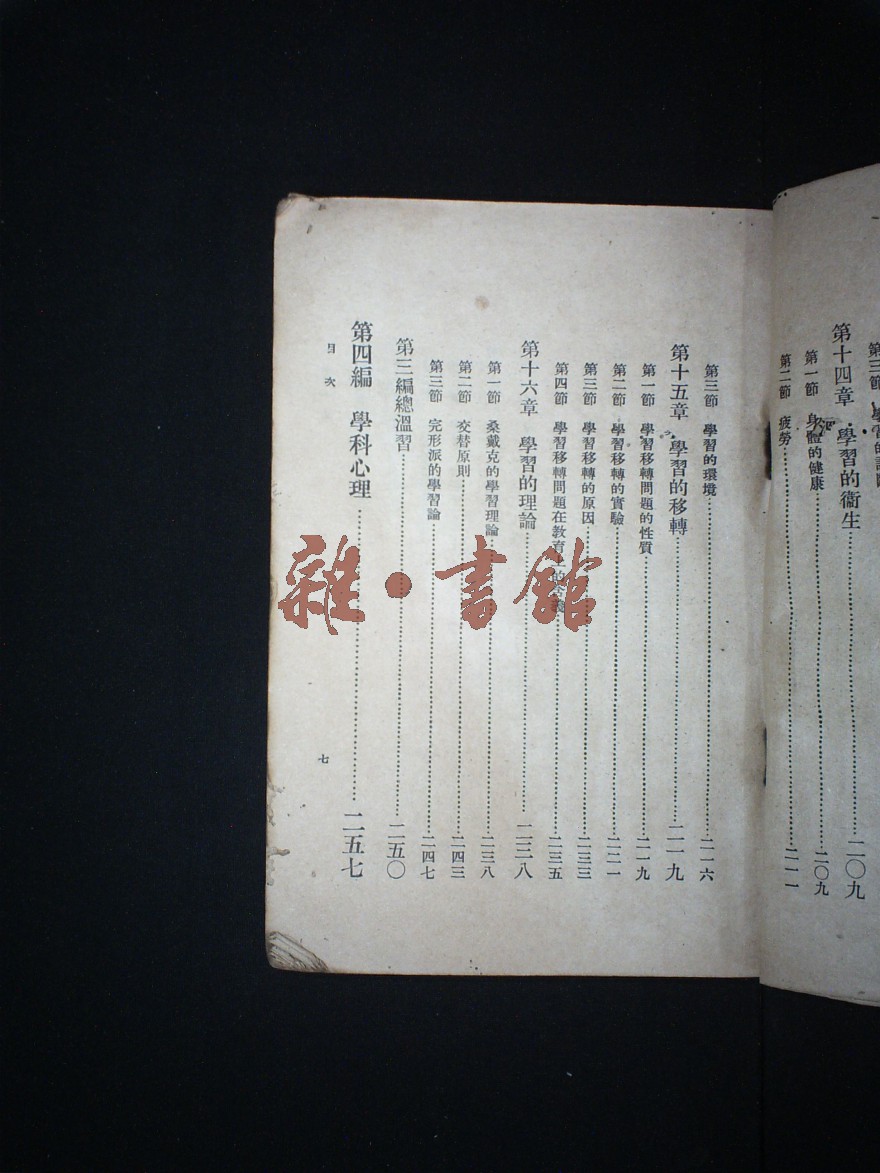 第三節 學習的
第十四章 學習的衞生……二〇九
第一節 身體的健康……二〇九
第二節 疲勞……二一一
第三節 學習的環境……二一六
第十五章 學習的移轉……二一九
第一節 學習移轉問題的性質……二一九
第二節 學習移轉的實驗……二二一
第三節 學習移轉的原因……二三三
第四節 學習移轉問題在教育 的 義……二三五
第十六章 學習的理論……二三八
第一節 桑戴克的學習理論……二三八
第二節 交替原則……二四三
第三節 完形派的學習論……二四七
第三編總溫習……二五〇
第四編 學科心理……二五七
目次
七
雜·書館